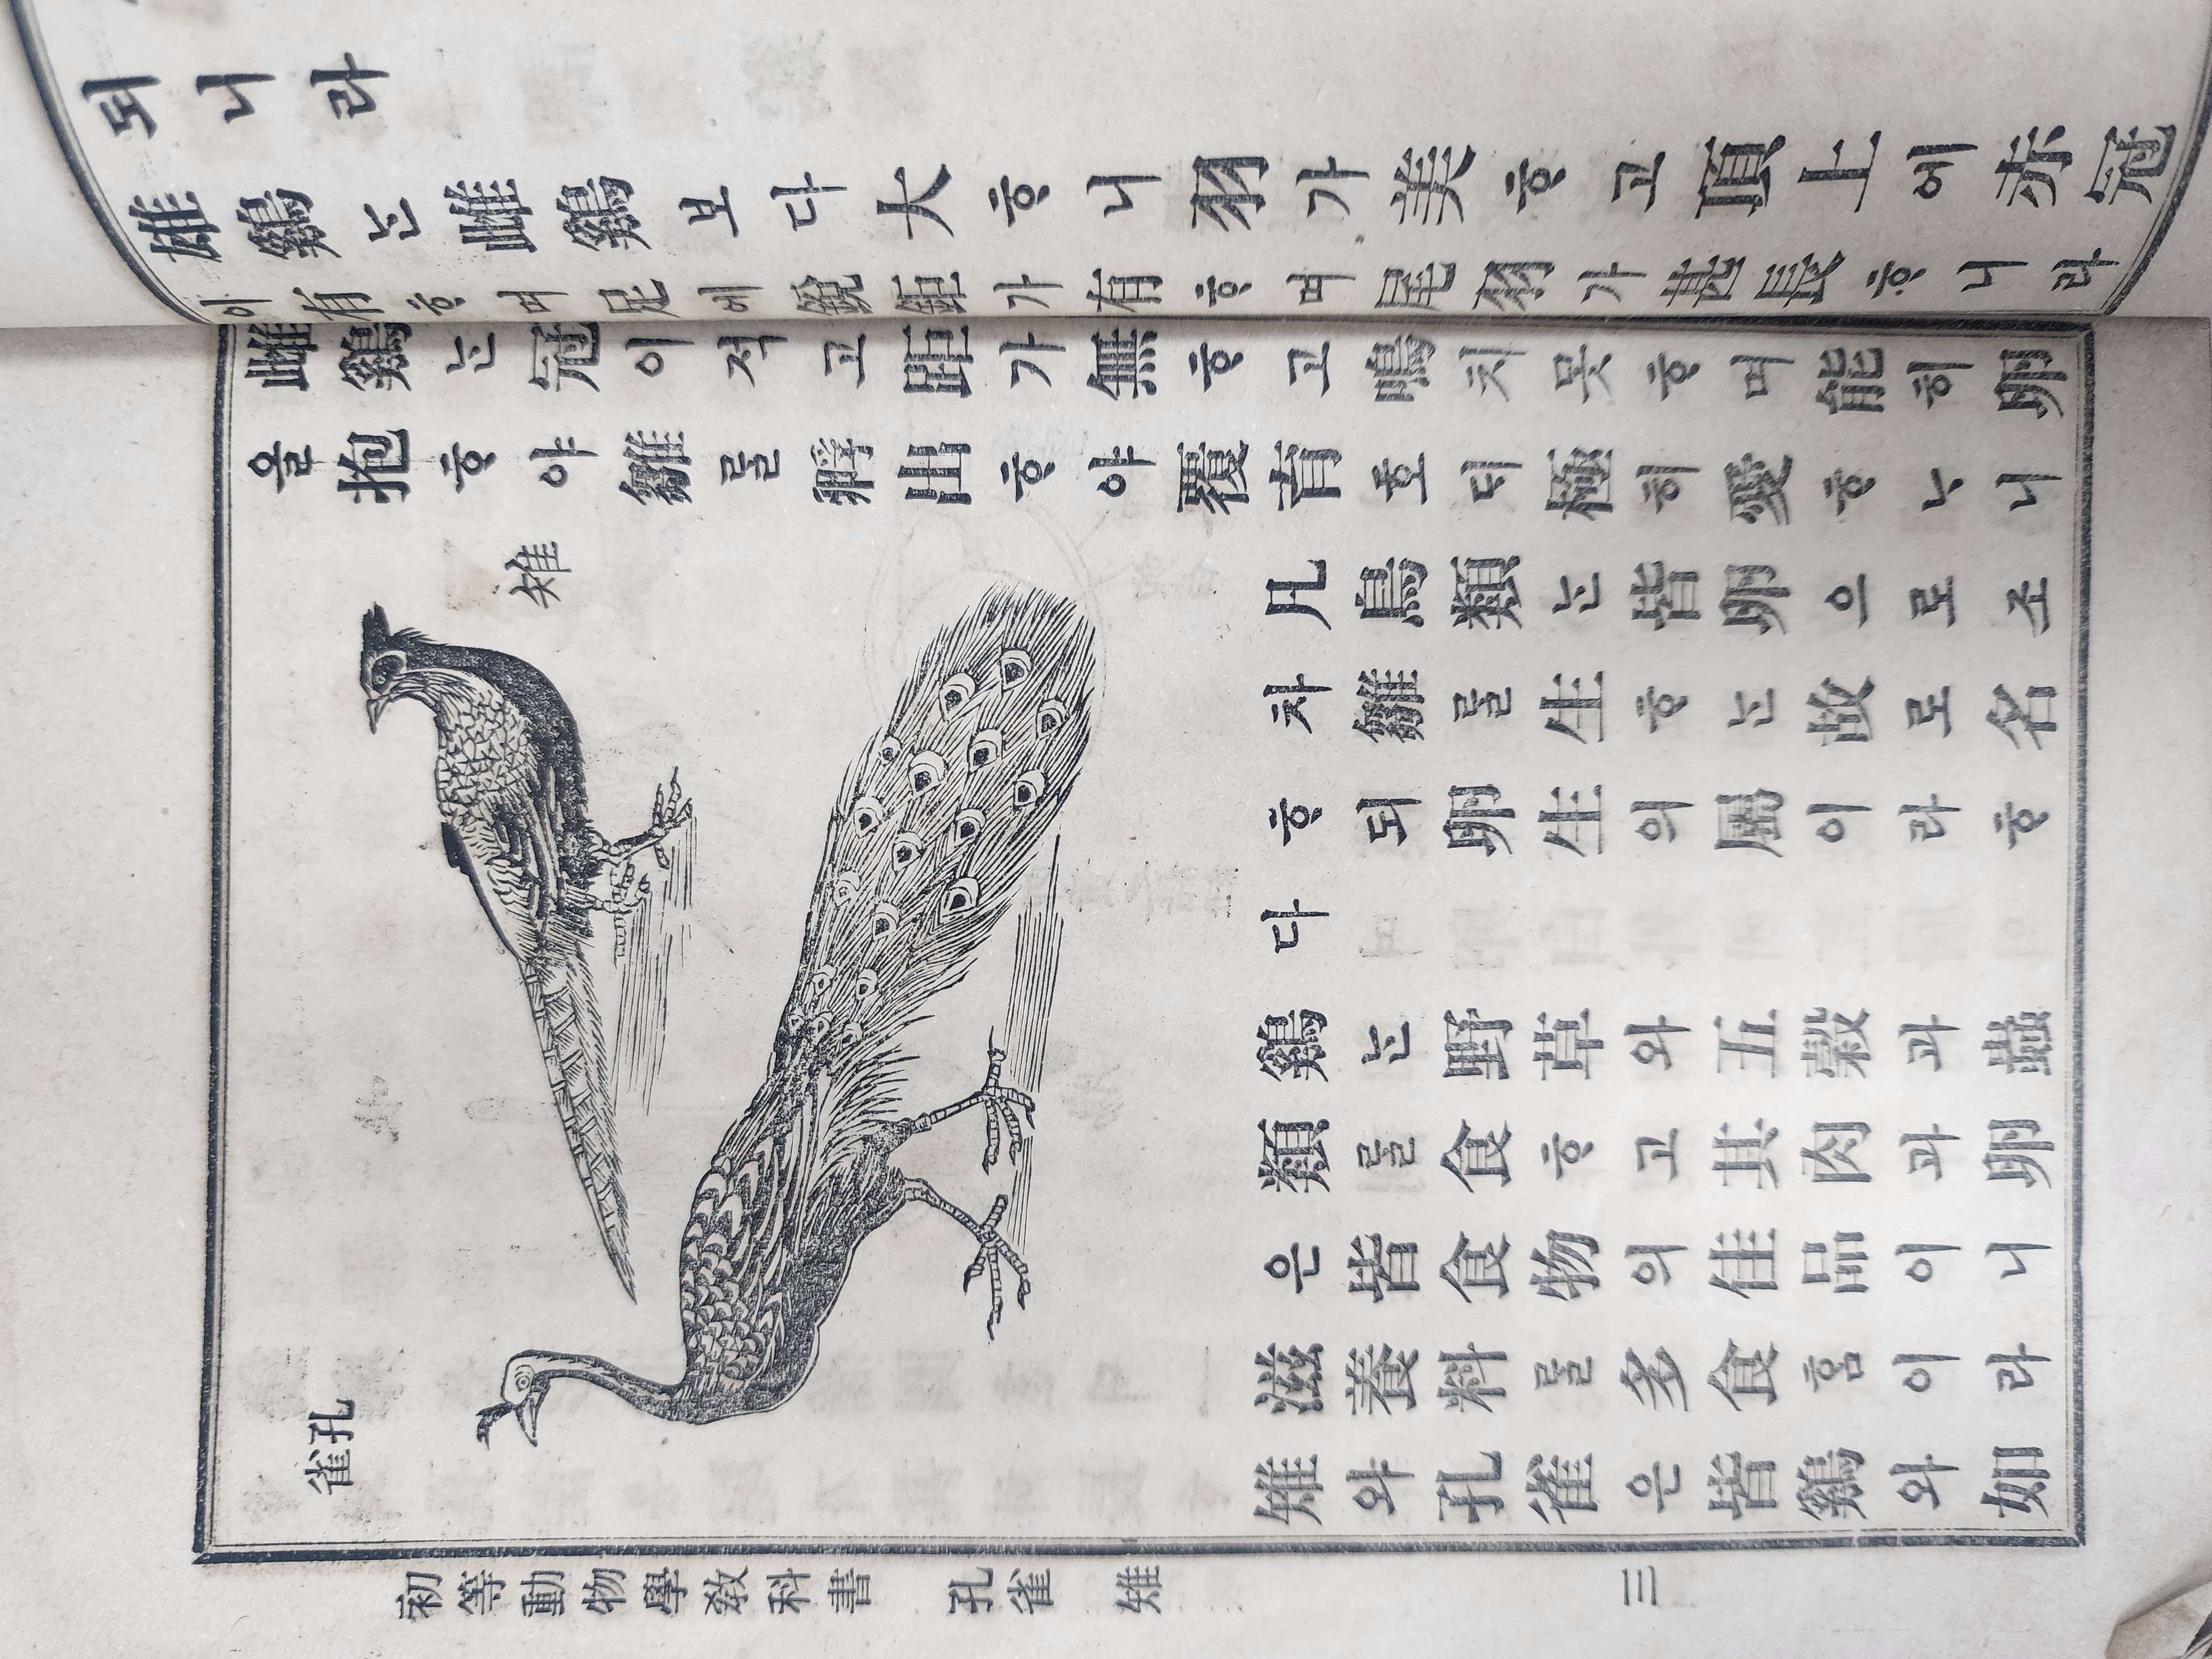 되니라
雄鷄ᄂᆞᆫ雌鷄보다大ᄒᆞ니羽가美ᄒᆞ고頂上에赤冠
이有ᄒᆞ며足에銳距가有ᄒᆞ며尾羽가甚長ᄒᆞ니라
雌鷄ᄂᆞᆫ冠이적고距가無ᄒᆞ고鳴치못ᄒᆞ며能히卵
을抱ᄒᆞ야雛를孵出ᄒᆞ야覆育호ᄃᆡ極히愛ᄒᆞᄂᆞ니
雉
孔雀
凡鳥類ᄂᆞᆫ皆卵으로조
차雛를生ᄒᆞᄂᆞᆫ故로名
ᄒᆞ되卵生의屬이라ᄒᆞ
다
鷄ᄂᆞᆫ野草와五穀과蟲
類를食ᄒᆞ고其肉과卵
은皆食物의佳品이니
滋養料를多食홈이라
雉와孔雀은皆鷄와如
初等動物學敎科書 孔雀 雉 三